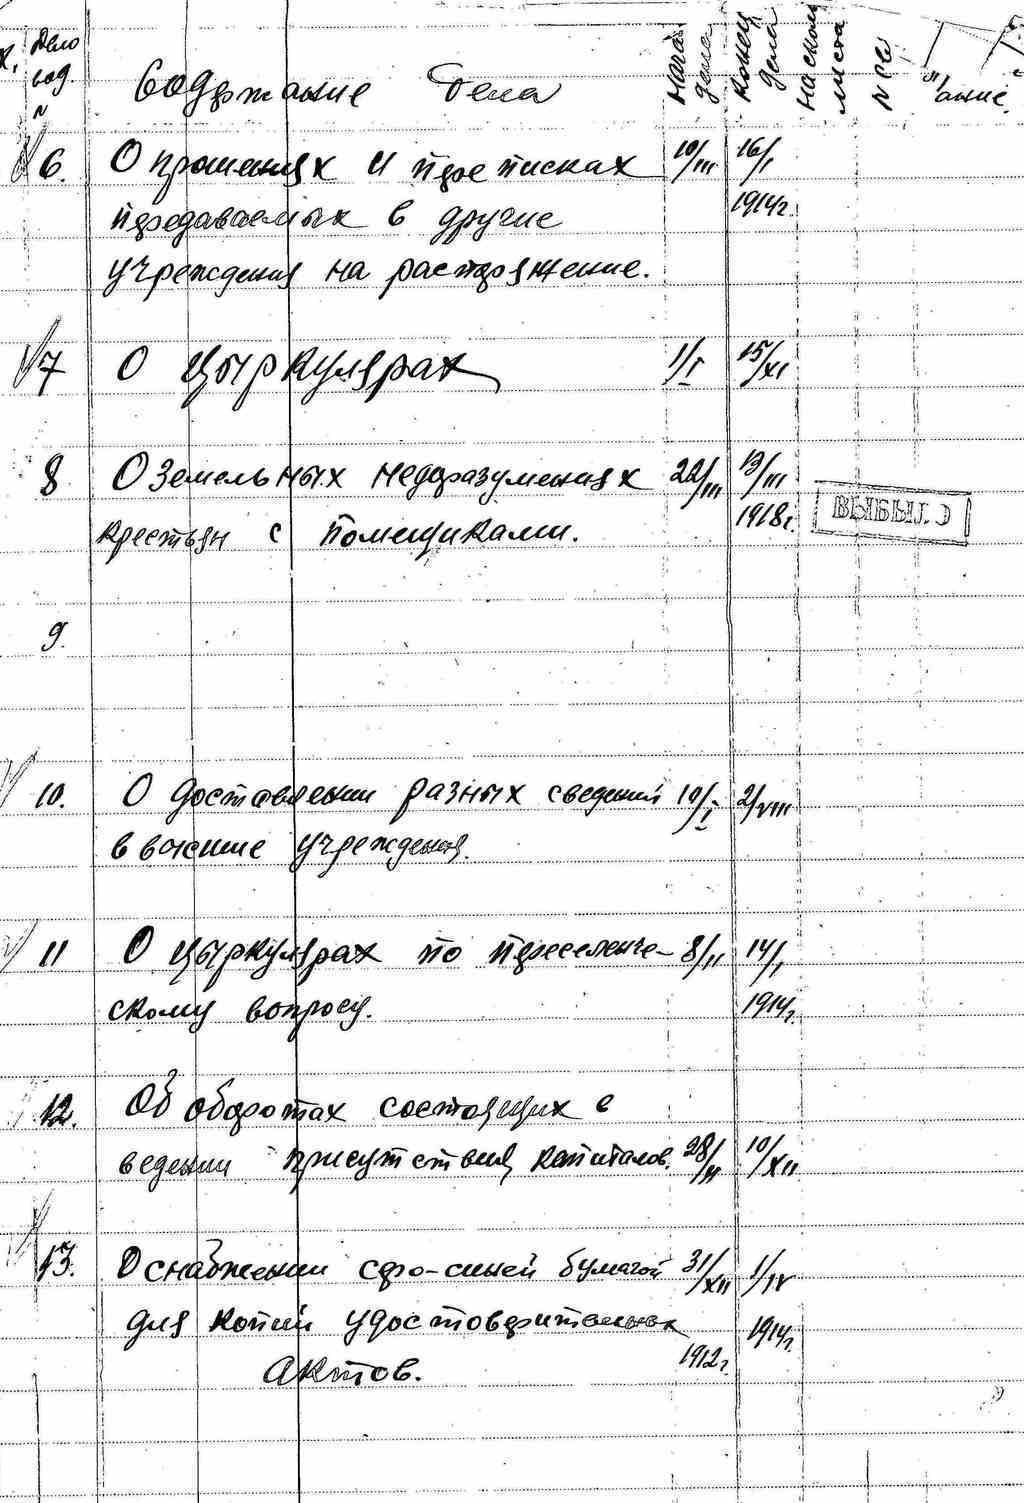 Дело
Содержание дела
начало дела
конец дела
на сколь. листа
6. О прошениях и переписках 10/III 16/I
передаваемых в другие 1914 г.
учреждения на распоряжение.
7 О цыркулярах 1/I 15/XI
8 О земельных недоразумениях 22/III 13/III
крестьян с помещиками. 1918 г. ВЫБЫЛО
9.
10. О доставлении разных сведений 10/I 2/VIII
в высшие учреждения.
11 О цыркулярах по переселенче- 8/II 14/I
скому вопросу. 1914 г.
12. Об оборотах состоящих в
ведении присутствия капиталов. 28/II 10/XII
13. О снабжении серо-синей бумагой 31/XII 1/IV
для копий удостоверительных 1914 г.
актов. 1912 г.